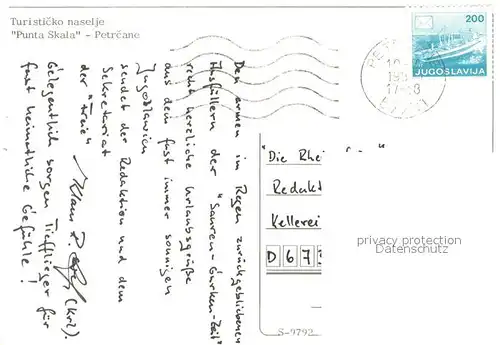 Turističko naselje
"Punta Skala" - Petrčane
200
JUGOSLAVIJA
17-18
Den armen im Regen zurückgebliebenen
Ausfüllern der "Sauren-Gurken-Zeit"
recht herzliche Urlaubsgrüße
aus dem fast immer sonnigen
Jugoslawien
sendet der Redaktion und dem
Sekretariat
der "Freie"
Klaus (krl).
Gelegentlich sorgen Tiefflieger für
fast heimatliche Gefühle!
"Die Rhei
Redakt
Kellerei
privacy protection
Datenschutz
D 67
S-9792